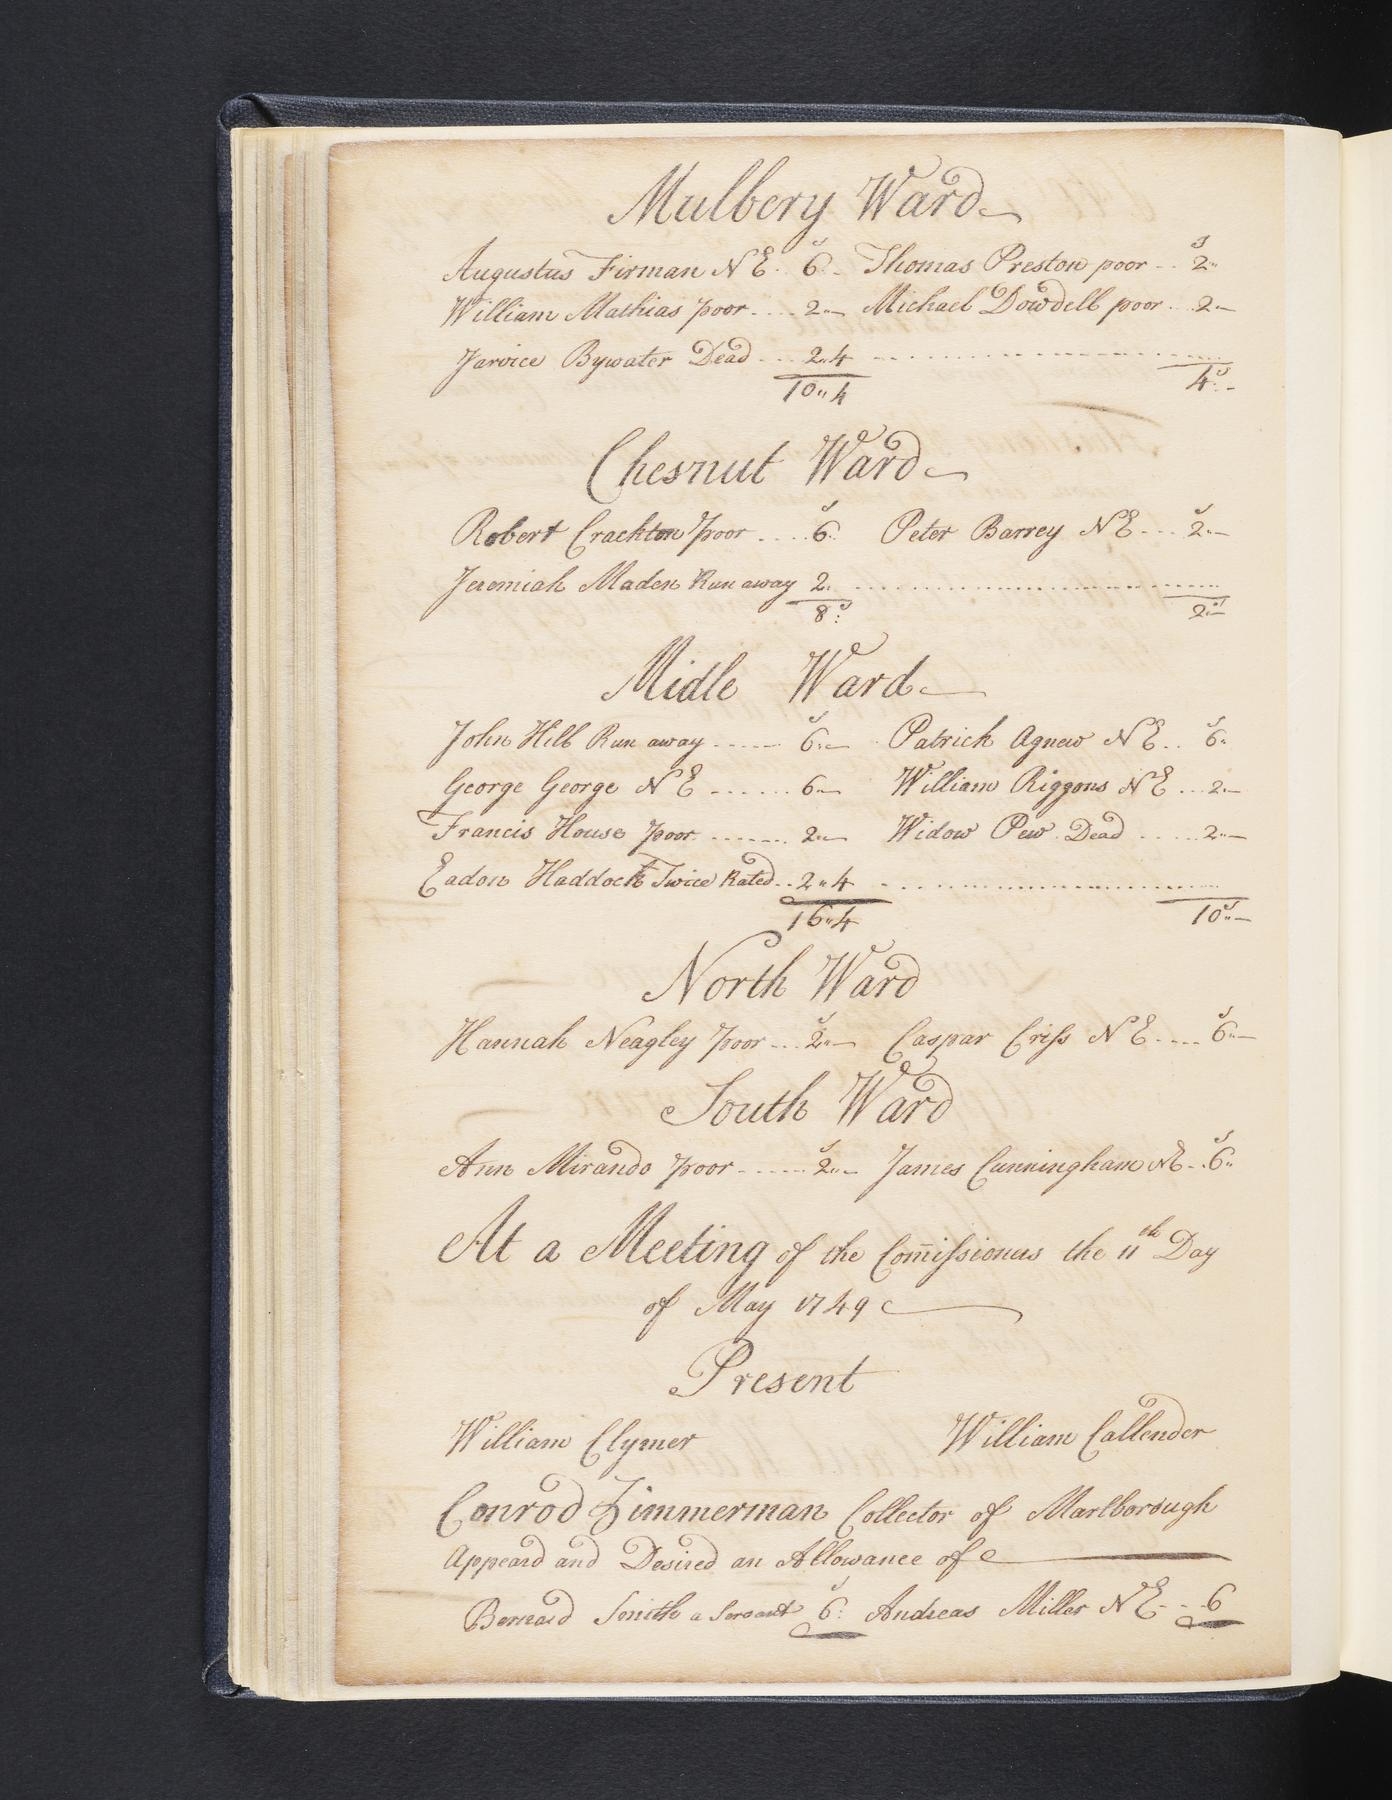 Mulbery Ward
Augustus Firman N E . 6 .. Thomas Preston poor .. 2 "
William Mathias poor .... 2 " — Michael Dowdell poor .. 2 " —
Jarvice Bywater Dead ... 2 " 4
10 " 4 4 s " -
Chesnut Ward
Robert Crackton poor .... 6 s : Peter Barrey N E ... 2 s " —
Jeremiah Maden Run away 2 "
8 s : 2 s " —
Midle Ward
John Hill Run away ..... 6 s " — Patrick Agnew N E .. 6 s "
George George N E ...... 6 " — William Riggons N E ... 2 " —
Francis House poor ....... 2 " — Widow Pew Dead ..... 2 " —
Eadon Haddock Twice Rated .. 2 " 4
16 " 4 10 s " —
North Ward
Hannah Neagley poor ... 2 s " — Caspar Criss N E .... 6 s " —
South Ward
Ann Mirando poor ...... 2 s " — James Cunningham N E .. 6 s "
At a Meeting of the Com̄issioners the 11th Day
of May 1749
Present
William Clymer William Callender
Conrod Zimmerman Collector of Marlborough
Appeard and Desired an Allowance of
Bernard Smith a Servant 6 s : Andreas Miller N E .. 6